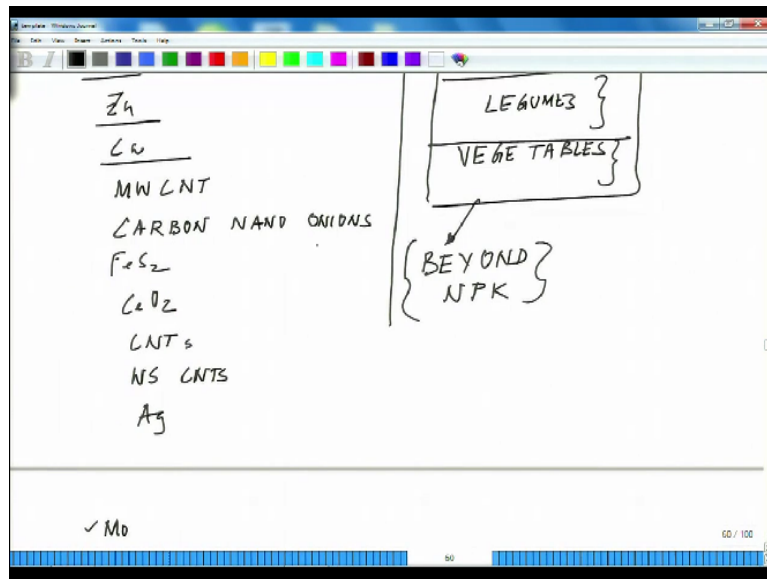 template - Windows Journal
File Edit View Insert Actions Tools Help
B I
Zn
Cu
MWCNT
CARBON NANO ONIONS
FeS2
CeO2
CNTs
WS CNTS
Ag
✓ Mo
LEGUMES }
VEGETABLES }
{ BEYOND }
NPK
60 / 100
60